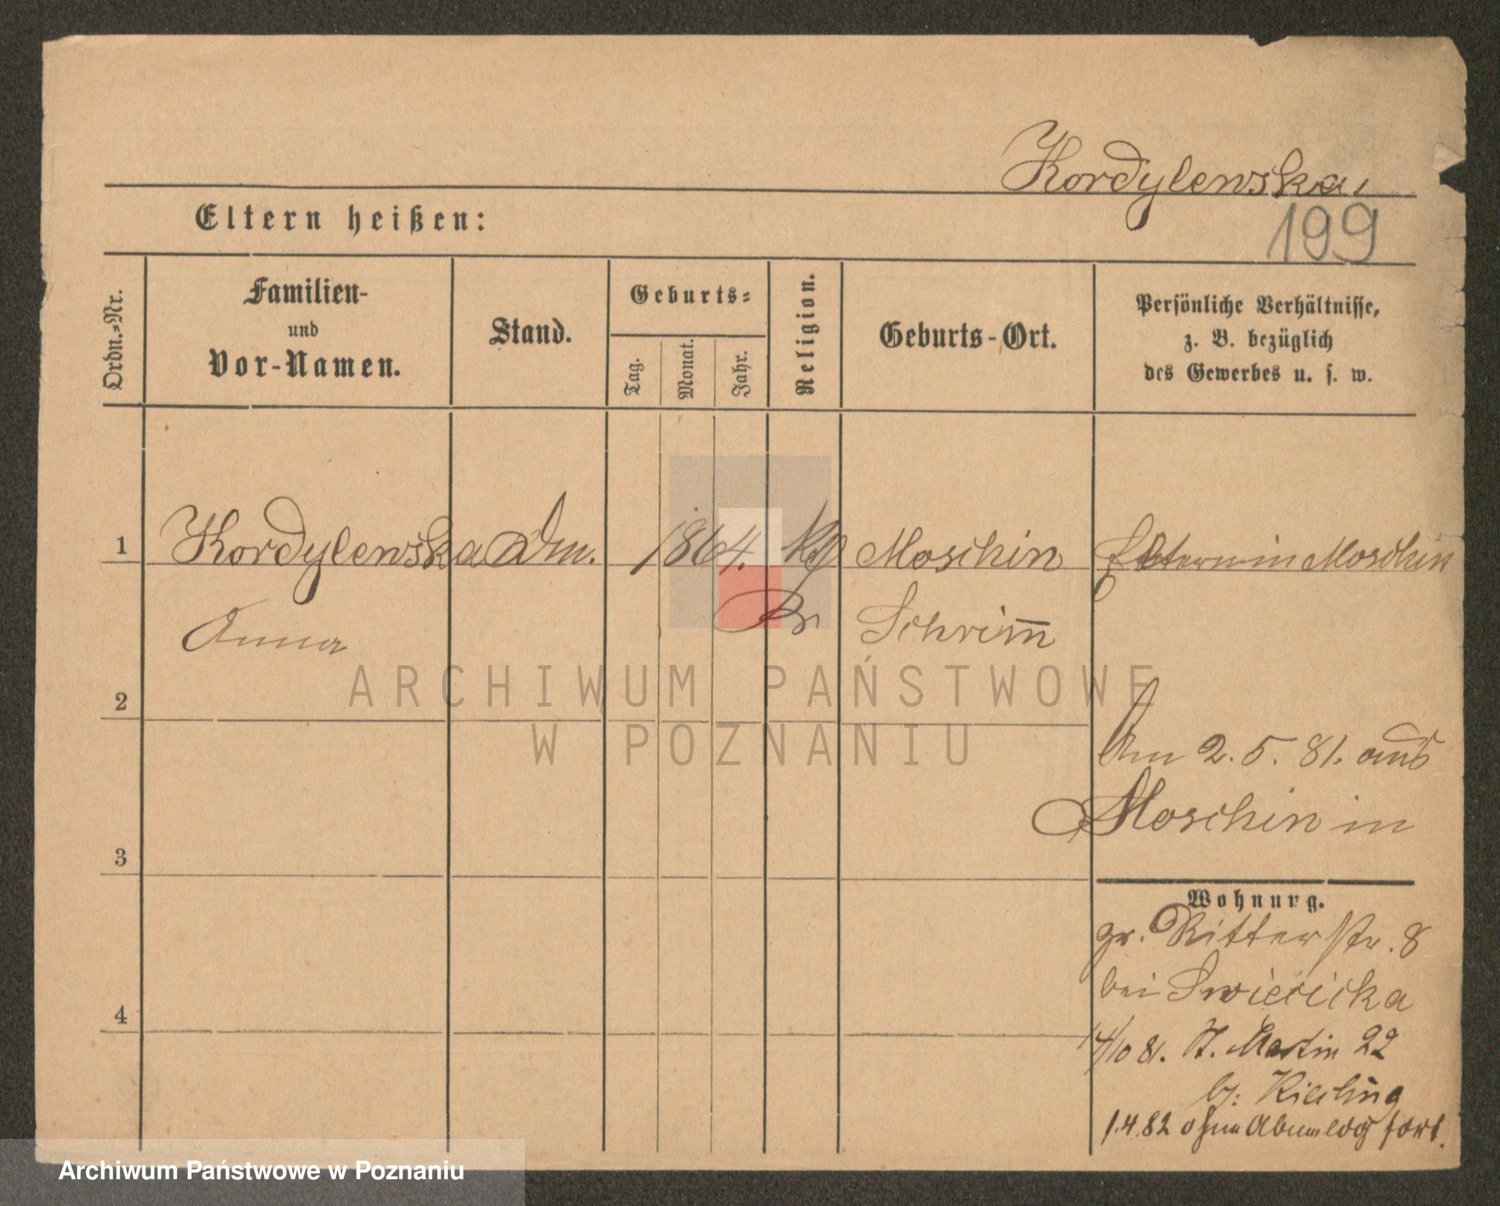 Kordylewska,
199
Eltern heißen:
Ordn.-Nr.
Familien-
und
Vor-Namen.
Stand.
Geburts-
Tag.
Monat.
Jahr.
Religion.
Geburts-Ort.
Persönliche Verhältnisse,
z. B. bezüglich
des Gewerbes u. s. w.
1
Kordylewska
1864.
Moschin
in Moschin
Anna
Schrim̅
ARCHIWUM PAŃSTWOWE
W POZNANIU
2
Am 2. 5. 81. aus
Moschin in
3
Wohnung.
gr. Ritterstr. 8
bei Swiecicka
4
14/10 81. St. Martin 22
b: Kiesling
1.4.82 ohne Abmeldg fort.
Archiwum Państwowe w Poznaniu